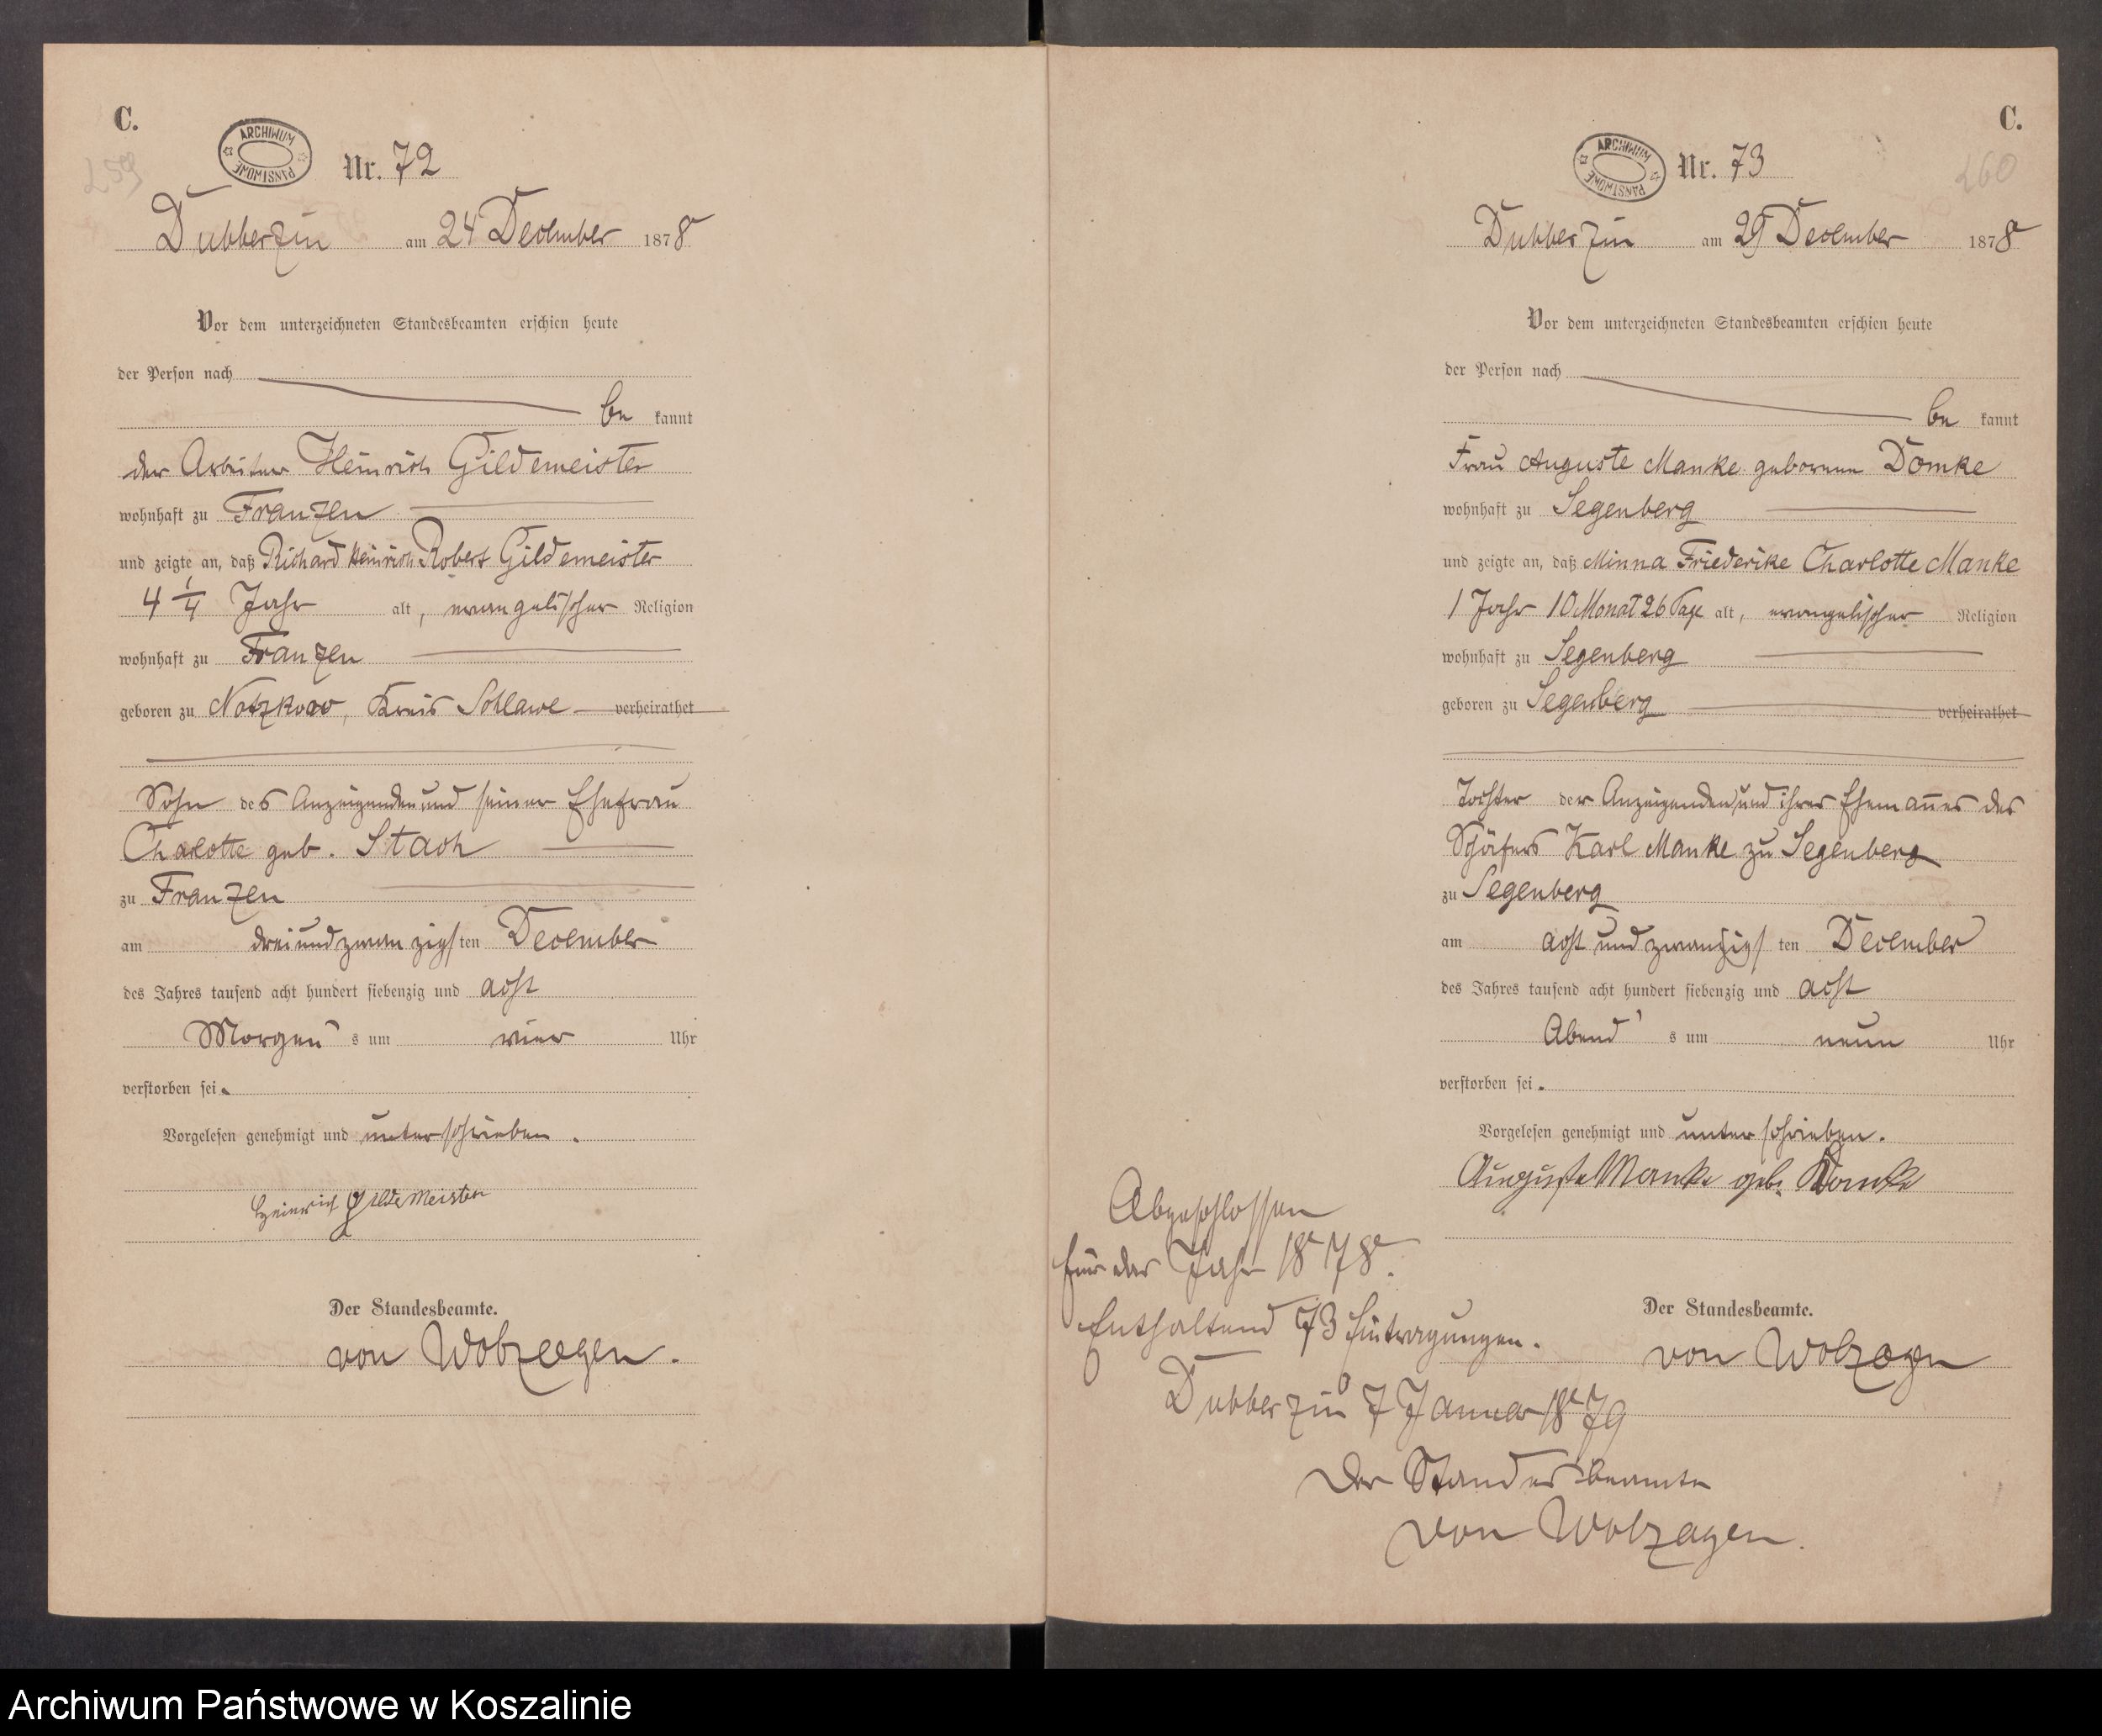 C.
259
ARCHIWUM PAŃSTWOWE
Nr. 72
Dubberzin am 24 December 1878
Vor dem unterzeichneten Standesbeamten erschien heute
der Person nach
be kannt
der Arbeiter Heinrich Gildemeister
wohnhaft zu Franzen
und zeigte an, daß Richard Heinrich Robert Gildemeister
4 1/4 Jahr alt, evangelischer Religion
wohnhaft zu Franzen
geboren zu Notzkow, Kreis Schlawe verheirathet
Sohn des Anzeigenden und seiner Ehefrau
Charlotte geb. Stach
zu Franzen
am dreiundzwanzigsten December
des Jahres tausend acht hundert siebenzig und acht
Morgens um vier Uhr
verstorben sei.
Vorgelesen genehmigt und unterschrieben.
Heinrich Gildemeister
Der Standesbeamte.
von Wolzogen.
C.
260
ARCHIWUM PAŃSTWOWE
Nr. 73
Dubberzin am 29 December 1878
Vor dem unterzeichneten Standesbeamten erschien heute
der Person nach
be kannt
Frau Auguste Manke geborene Domke
wohnhaft zu Segenberg
und zeigte an, daß Minna Friederike Charlotte Manke
1 Jahr 10 Monat 26 Tage alt, evangelischer Religion
wohnhaft zu Segenberg
geboren zu Segenberg verheirathet
Tochter der Anzeigenden und ihres Ehemannes des
Schäfers Karl Manke zu Segenberg
zu Segenberg
am acht und zwanzigsten December
des Jahres tausend acht hundert siebenzig und acht
Abends um neun Uhr
verstorben sei.
Vorgelesen genehmigt und unterschrieben.
Auguste Manke geb. Domke
Der Standesbeamte.
von Wolzogen
Abgeschlossen
für das Jahr 1878.
Enthaltend 73 Eintragungen.
Dubberzin 7 Januar 1879
Der Standesbeamte
von Wolzogen.
Archiwum Państwowe w Koszalinie